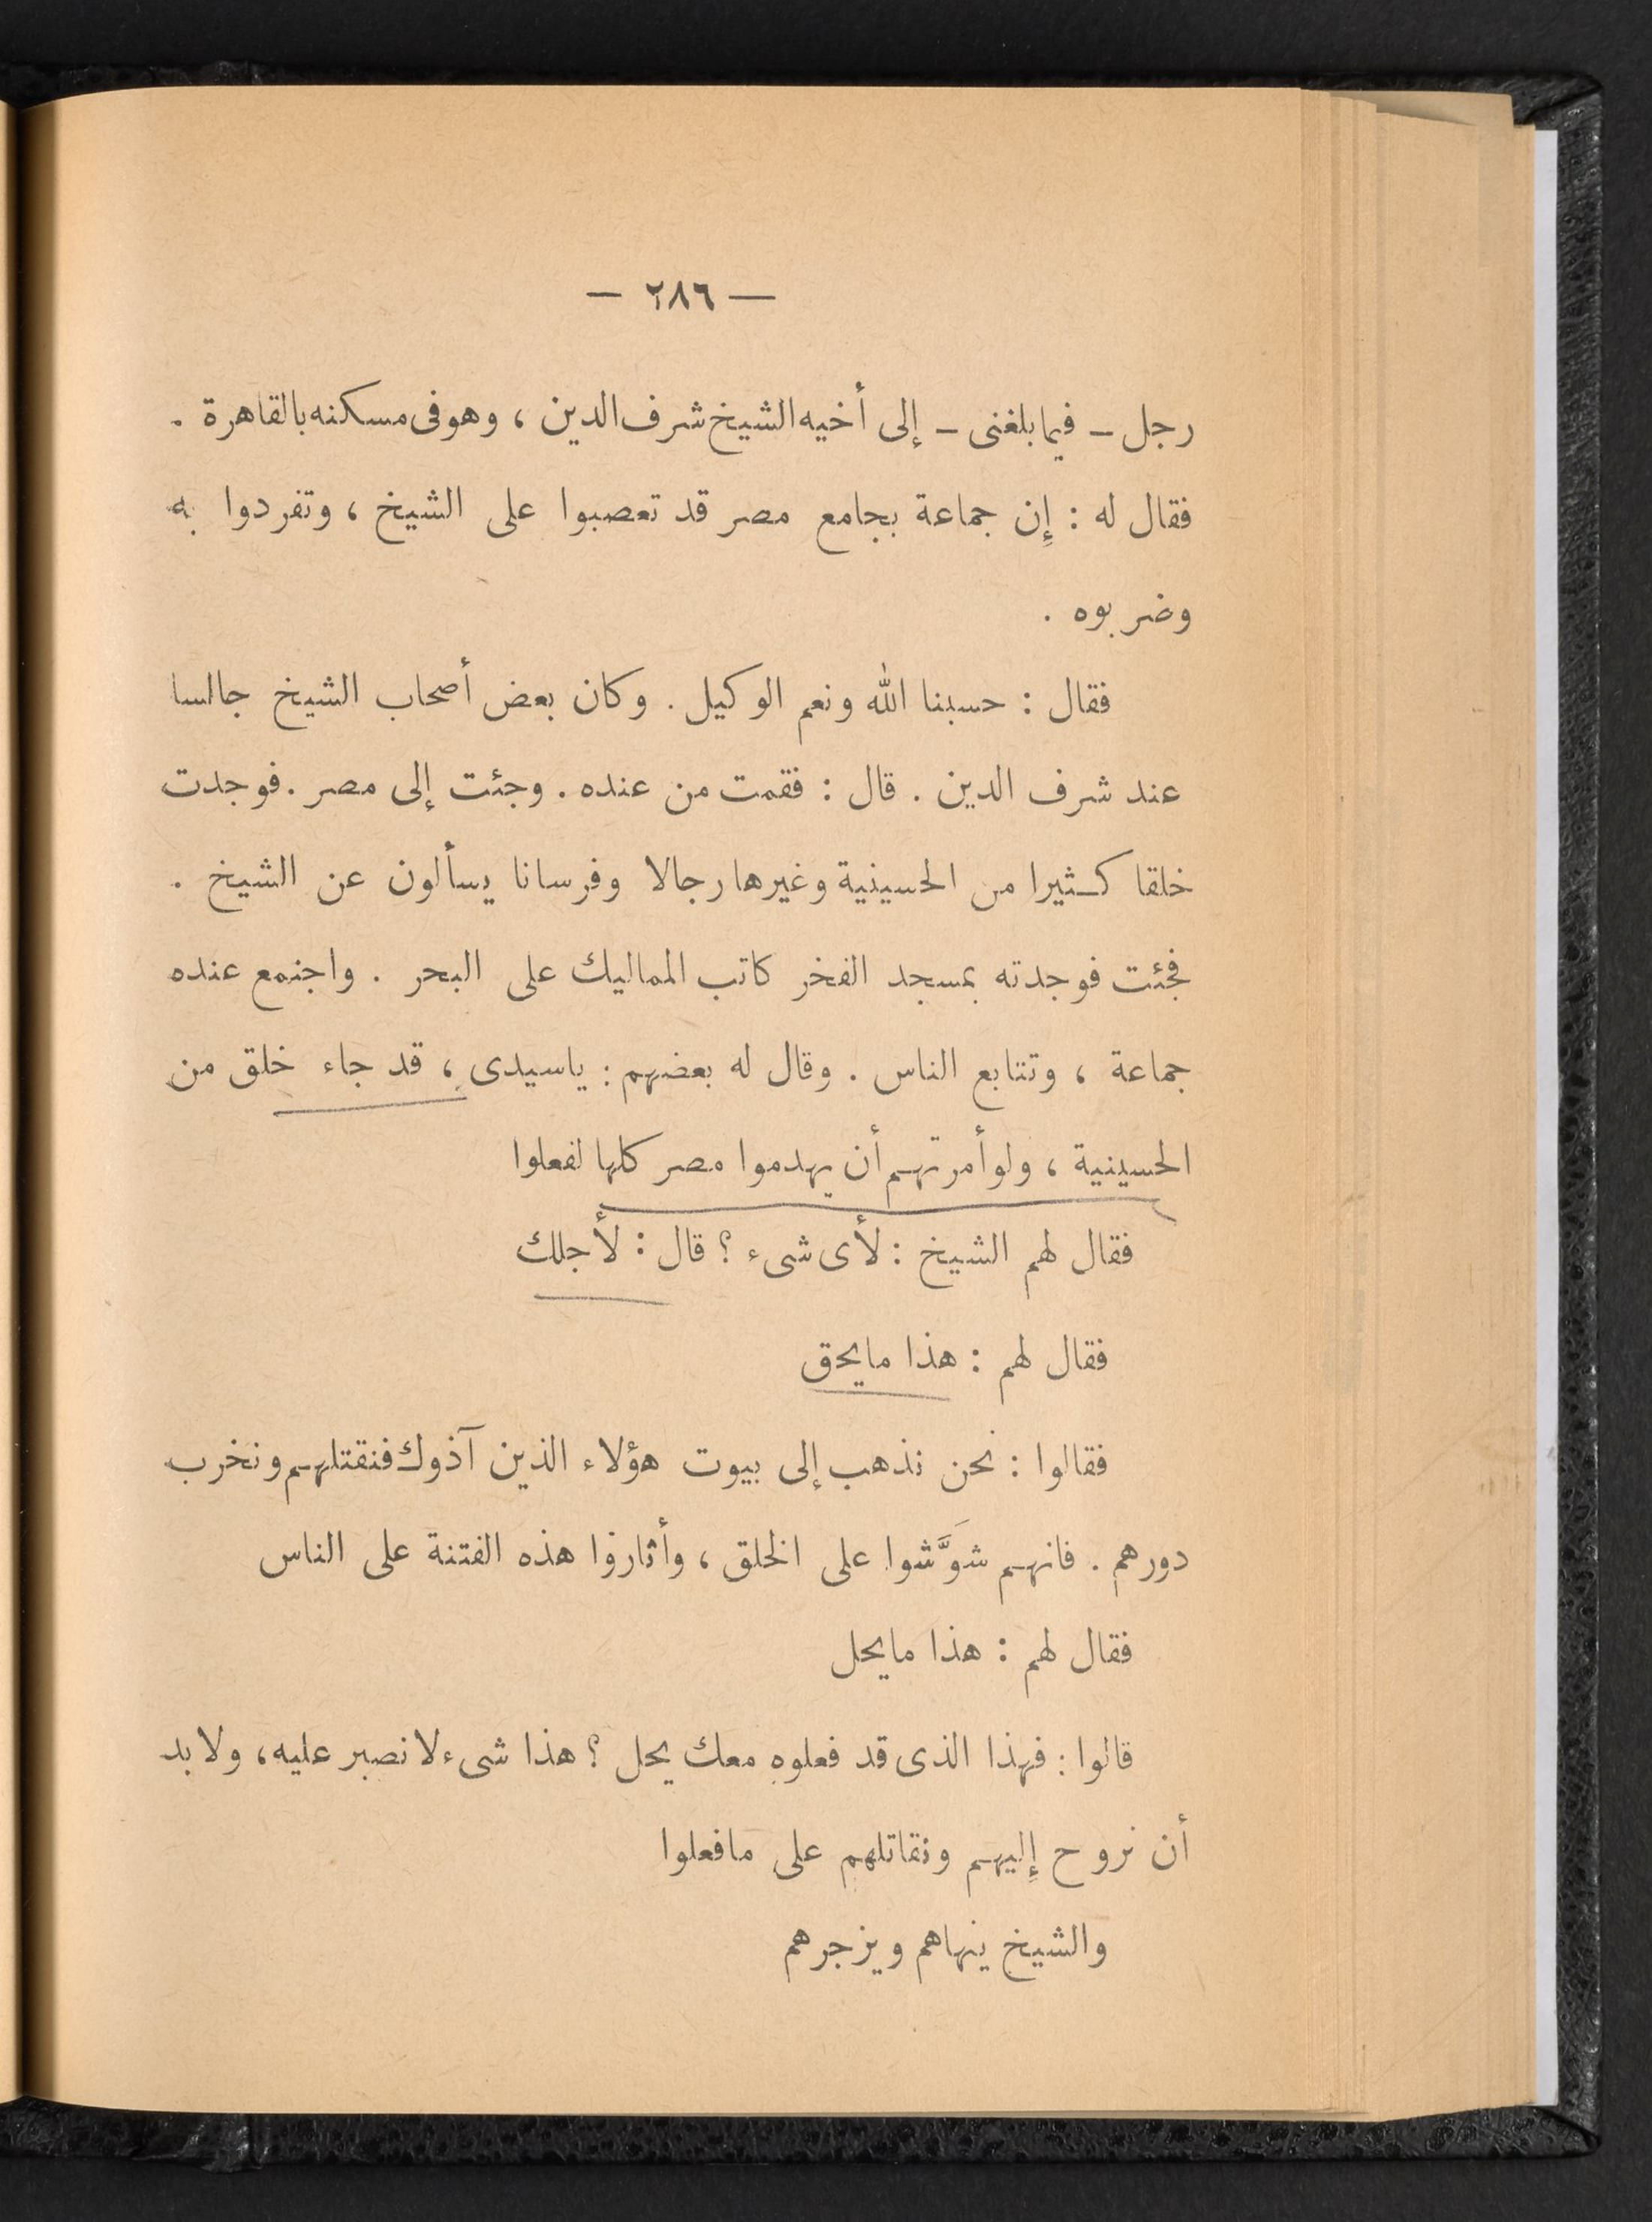 — ٢٨٦ —
رجل – فيما بلغنى – إلى أخيه الشيخ شرف الدين ، وهو فى مسكنه بالقاهرة .
فقال له : إِن جماعة بجامع مصر قد تعصبوا على الشيخ ، وتفردوا به
وضربوه .
فقال : حسبنا الله ونعم الوكيل . وكان بعض أصحاب الشيخ جالسا
عند شرف الدين . قال : فقمت من عنده . وجئت إلى مصر . فوجدت
خلقا كثيرا من الحسينية وغيرها رجالا وفرسانا يسألون عن الشيخ .
فجئت فوجدته بمسجد الفخر كاتب المماليك على البحر . واجتمع عنده
جماعة ، وتتابع الناس . وقال له بعضهم : ياسيدى ، قد جاء خلق من
الحسينية ، ولو أمرتهم أن يهدموا مصر كلها لفعلوا
فقال لهم الشيخ : لأى شىء ؟ قال : لأجلك
فقال لهم : هذا مايحق
فقالوا : نحن نذهب إلى بيوت هؤلاء الذين آذوك فنقتلهم ونخرب
دورهم . فانهم شوَّشَوا على الخلق ، وأثاروا هذه الفتنة على الناس
فقال لهم : هذا مايحل
قالوا : فهذا الذى قد فعلوه معك يحل ؟ هذا شىء لا نصبر عليه ، ولا بد
أن نروح إِليهم ونقاتلهم على مافعلوا
والشيخ ينهاهم ويزجرهم